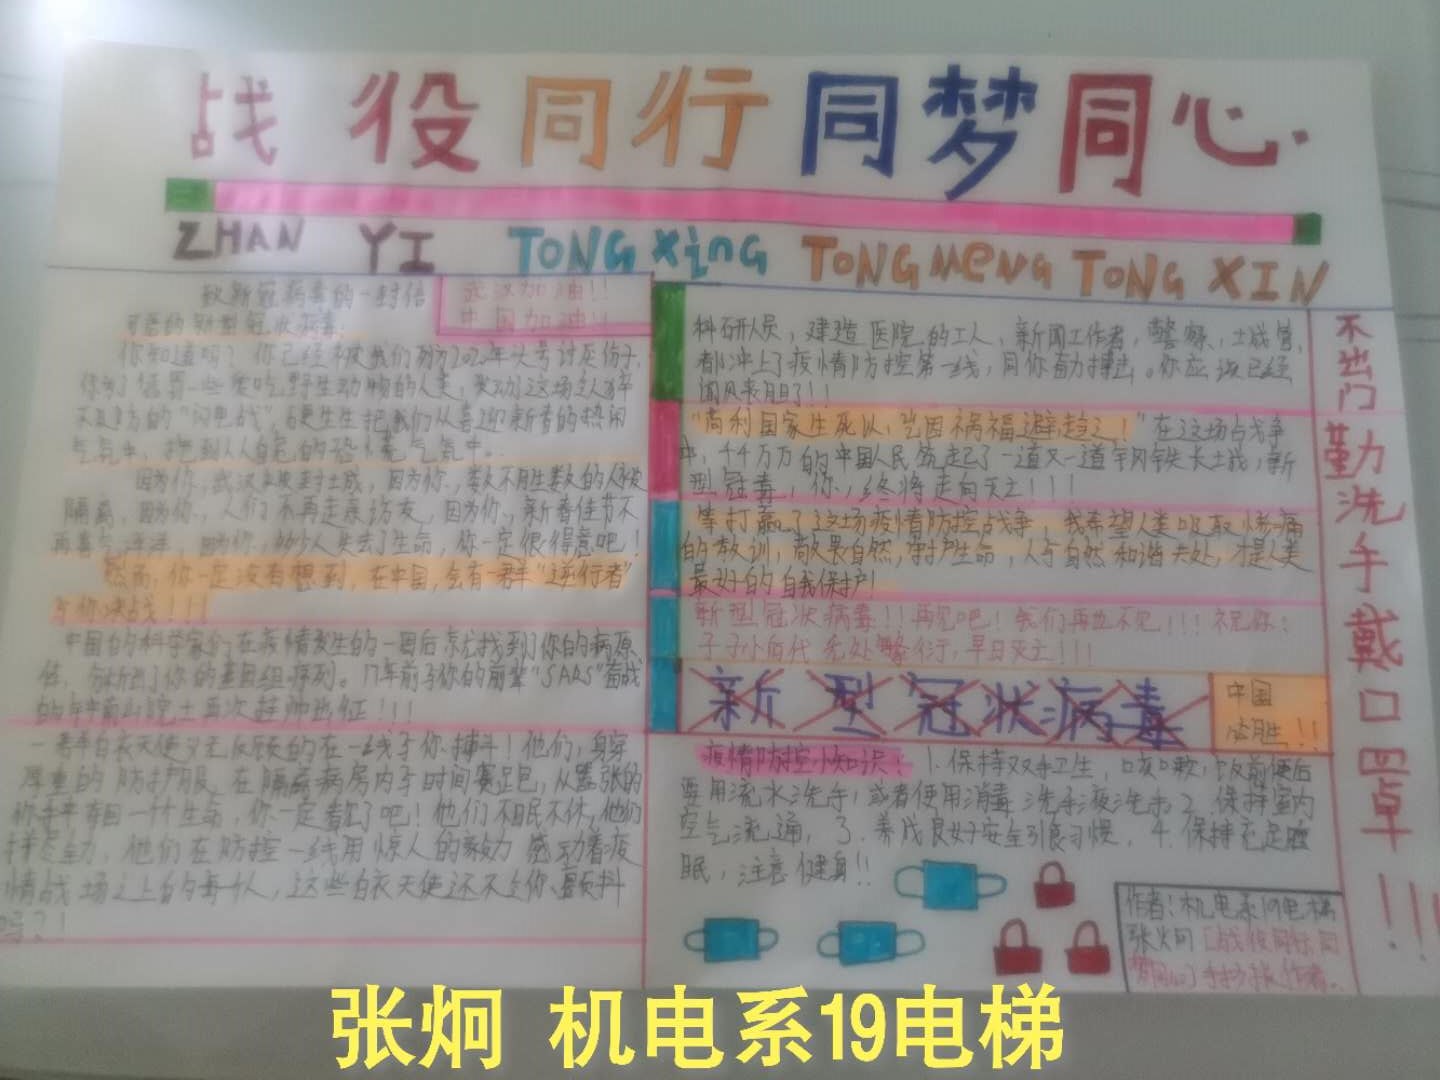 战役同行同梦同心
ZHAN YI TONG XING TONG MENG TONG XIN
致新冠病毒的一封信
武汉加油!!
中国加油!!
可恶的新型冠状病毒:
你知道吗?你已经被我们列为2020年头号讨厌份子,
你为了惩罚一些爱吃野生动物的人类,发动这场让人猝
不及防的“闪电战”,硬生生把我们从喜迎新春的热闹
气氛中,拖到人人自危的恐慌气氛中。
因为你,武汉被封城,因为你,数不胜数的人被
隔离,因为你,人们不再走亲访友,因为你,新春佳节不
再喜气洋洋,因为你,少人失去了生命,你一定很得意吧!
然而,你一定没有想到,在中国,会有一群“逆行者”
与你决战!!!
中国的科学家们在疫情发生的一周后就找到了你的病原
体,分析了你的基因组序列。17年前与你的前辈“SARS”奋战
的钟南山院士再次挂帅出征!!!
一群白衣天使义无反顾的在一线与你搏斗!他们,身穿
厚重的防护服,在隔离病房内与时间赛跑,从嚣张的
你手中夺回一个个生命,你一定看了吧!他们不眠不休,他们
拼尽全力,他们在防控一线用惊人的毅力感动着疫
情战场之上的每个人,这些白衣天使还不令你颤抖
吗?!
科研人员,建造医院的工人,新闻工作者,警察,士城管,
都冲上了疫情防控第一线,同你奋力搏击。你应该已经
闻风丧胆了!!
“苟利国家生死以,岂因祸福避趋之!”在这场战争
中,千千万万的中国人民筑起了一道又一道钢铁长城,新
型冠毒,你,终将走向灭亡!!!
等打赢了这场疫情防控战争,我希望人类吸取惨痛
的教训,敬畏自然,守护生命,人与自然和谐共处,才是人类
最好的自我保护!
新型冠状病毒!!再见吧!我们再也不见!!!祝你:
子子孙百代无处繁衍,早日灭亡!!!
新型冠状病毒
中国
必胜!!
疫情防控小知识:1.保持双手卫生,咳嗽,饭前便后
要用流水洗手,或者使用消毒洗手液洗手2.保持室内
空气流通,3.养成良好安全引良习惯,4.保持充足睡
眠,注意健身!!
不出门勤洗手戴口罩!!!
作者:机电系19电梯
张炯[战役同行同
梦同心]手抄报作者。
张炯 机电系19电梯